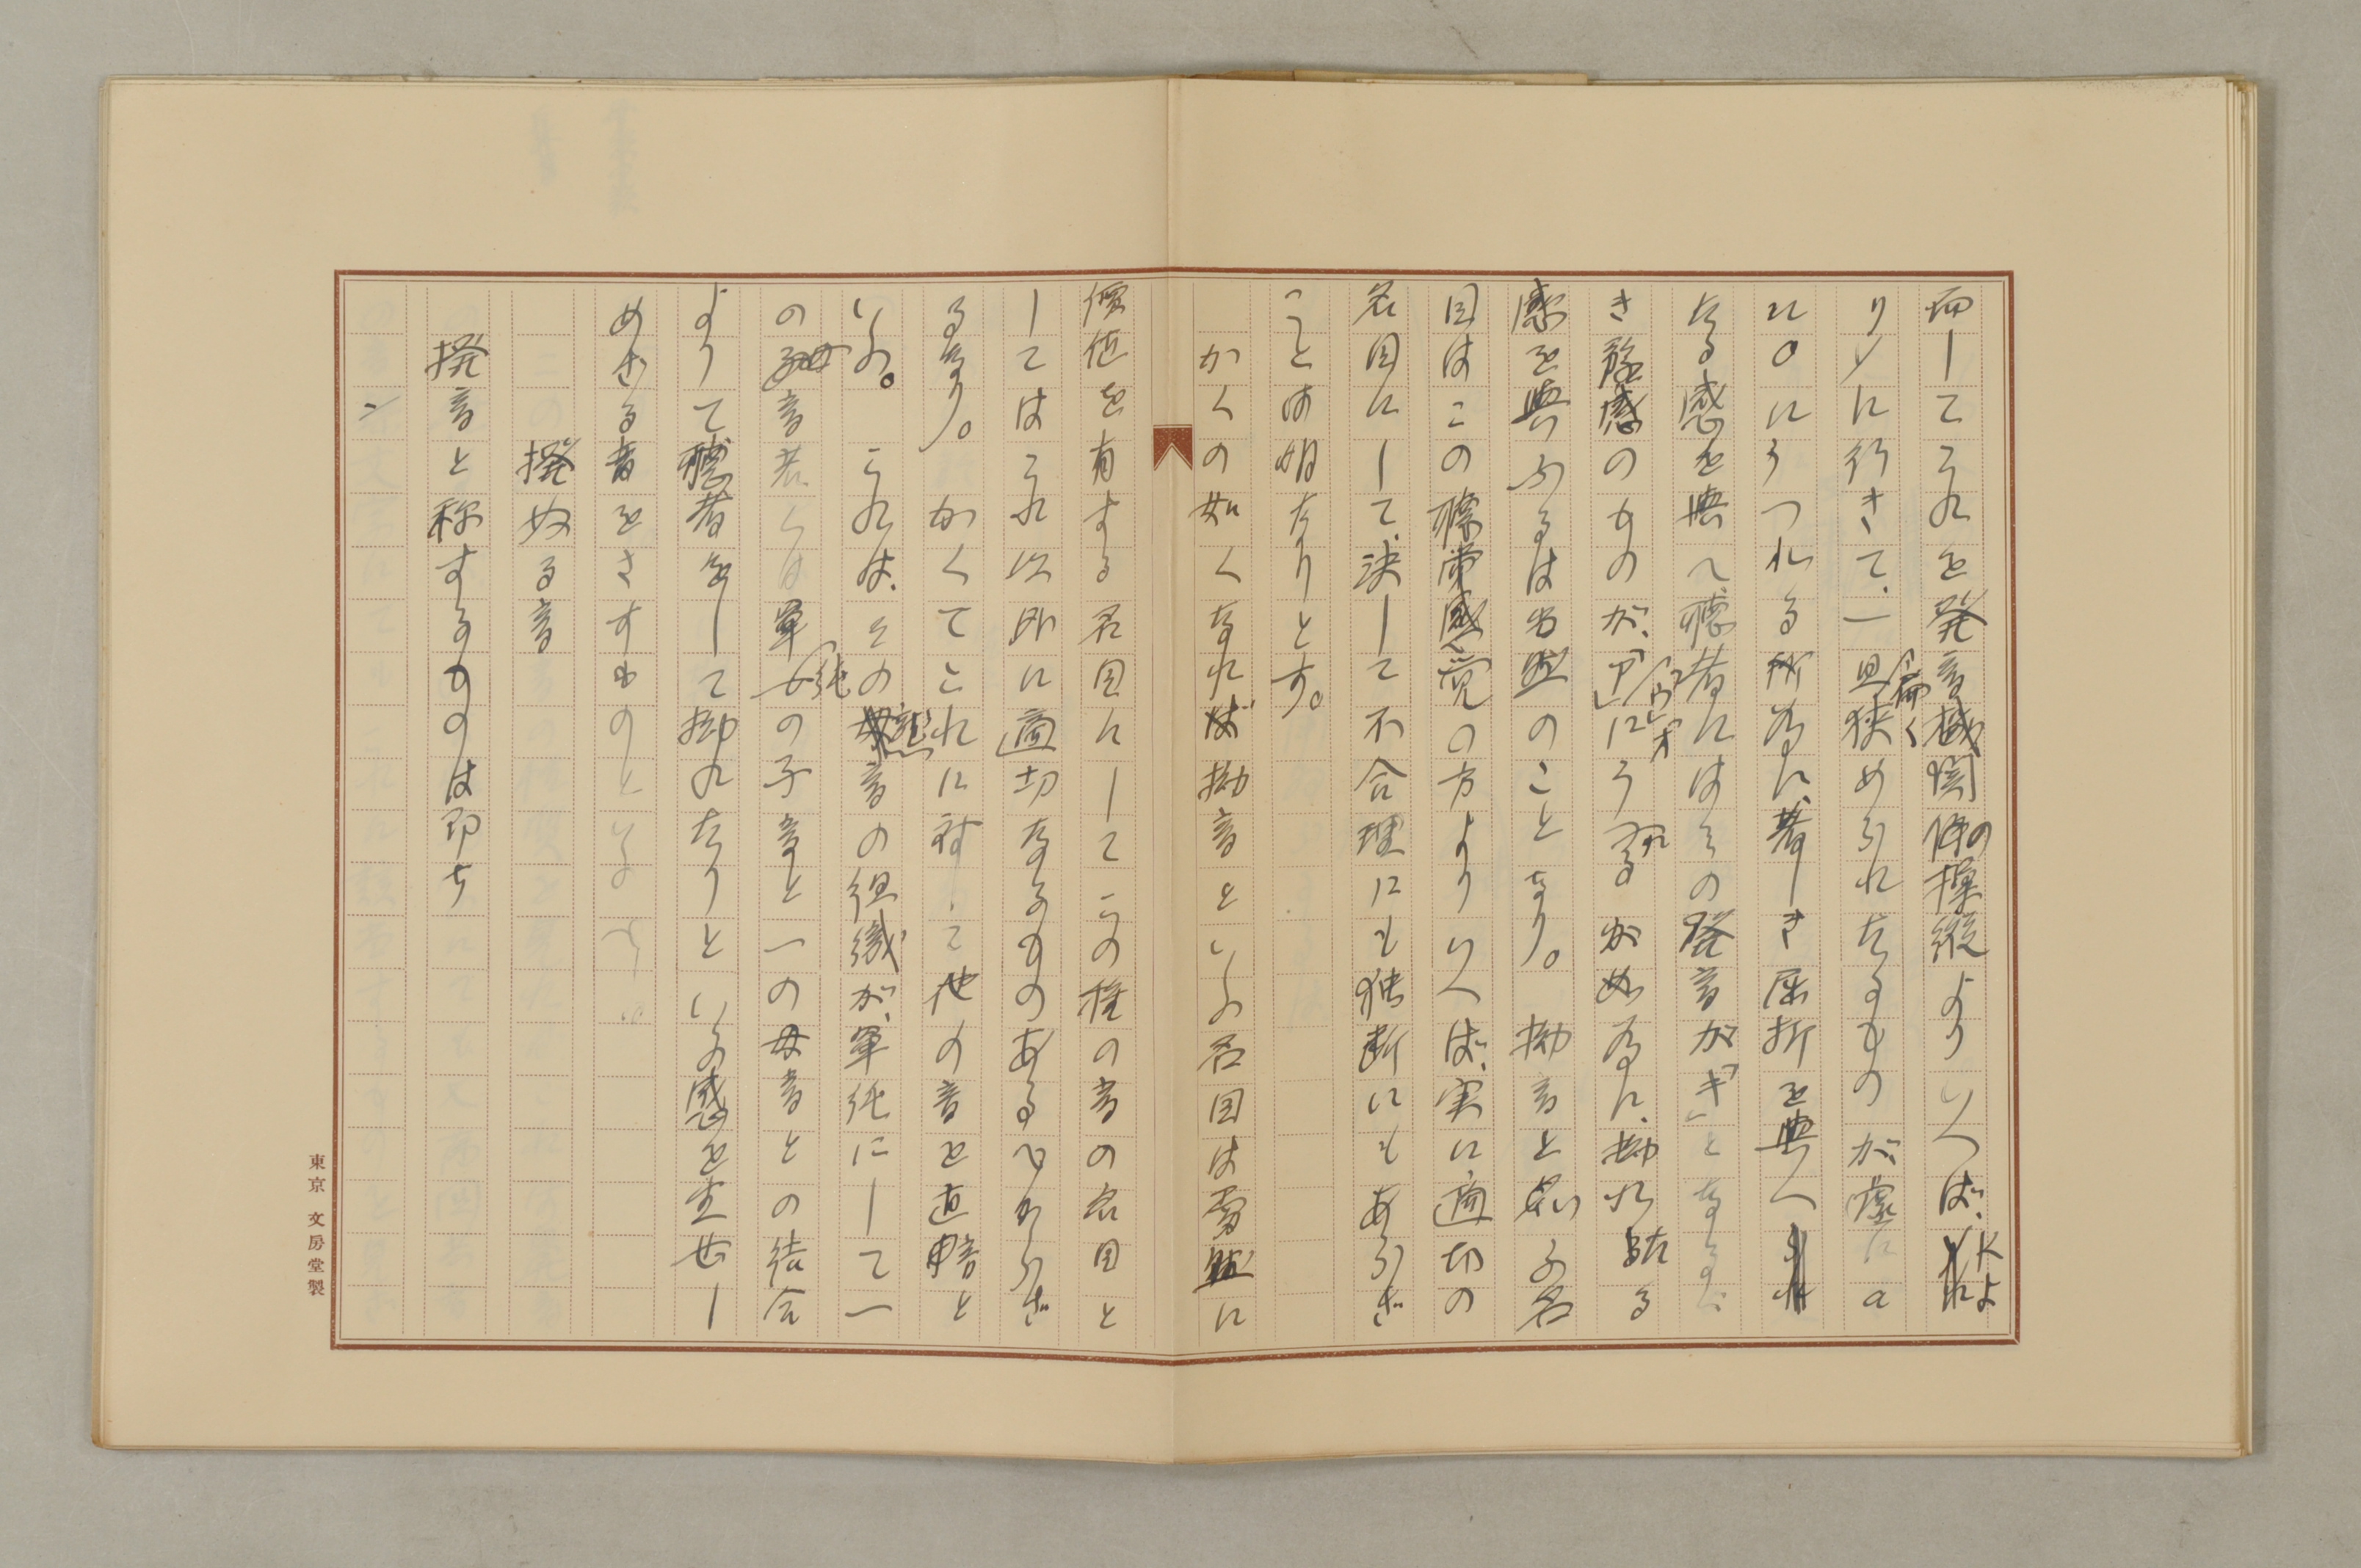 而してこれを発音機関の操縦よりいへば、Kよ
りyに行きて、一旦狭く扁められたるものが凄にa
にoにうつれる所為に、著しき屈折を與へ
たる感を與へ聴者にはその発音が「ギ」となるべ
き豫感のものが、「ア」「ウ」「オ」にうつるが如き為に、拗れ詰る
感を與ふるは当然のことなり。拗音と名づくる名
目はこの標準感覚の方よりいへば、実に適切の
名目にして、決して不合理にも独断にもあらざ
ることは明なりとす。
かくの如くなれば拗音といふ名目は当然に
價値を有する名目にしてこの種の音の名目と
してはこれ以外に適切なるものあるべからざ
るなり。かくてこれに対して他の音を直音と
いふ。これは、その音の組織が、単純にして一
の母音若くは単純の子音と一の母音との結合
よりて聴者をして拗れたりといふ感を生ぜし
めざる音をさすものといふべし。
撥ぬる音
撥音と称するものは即ち
ン
東京 文房堂製